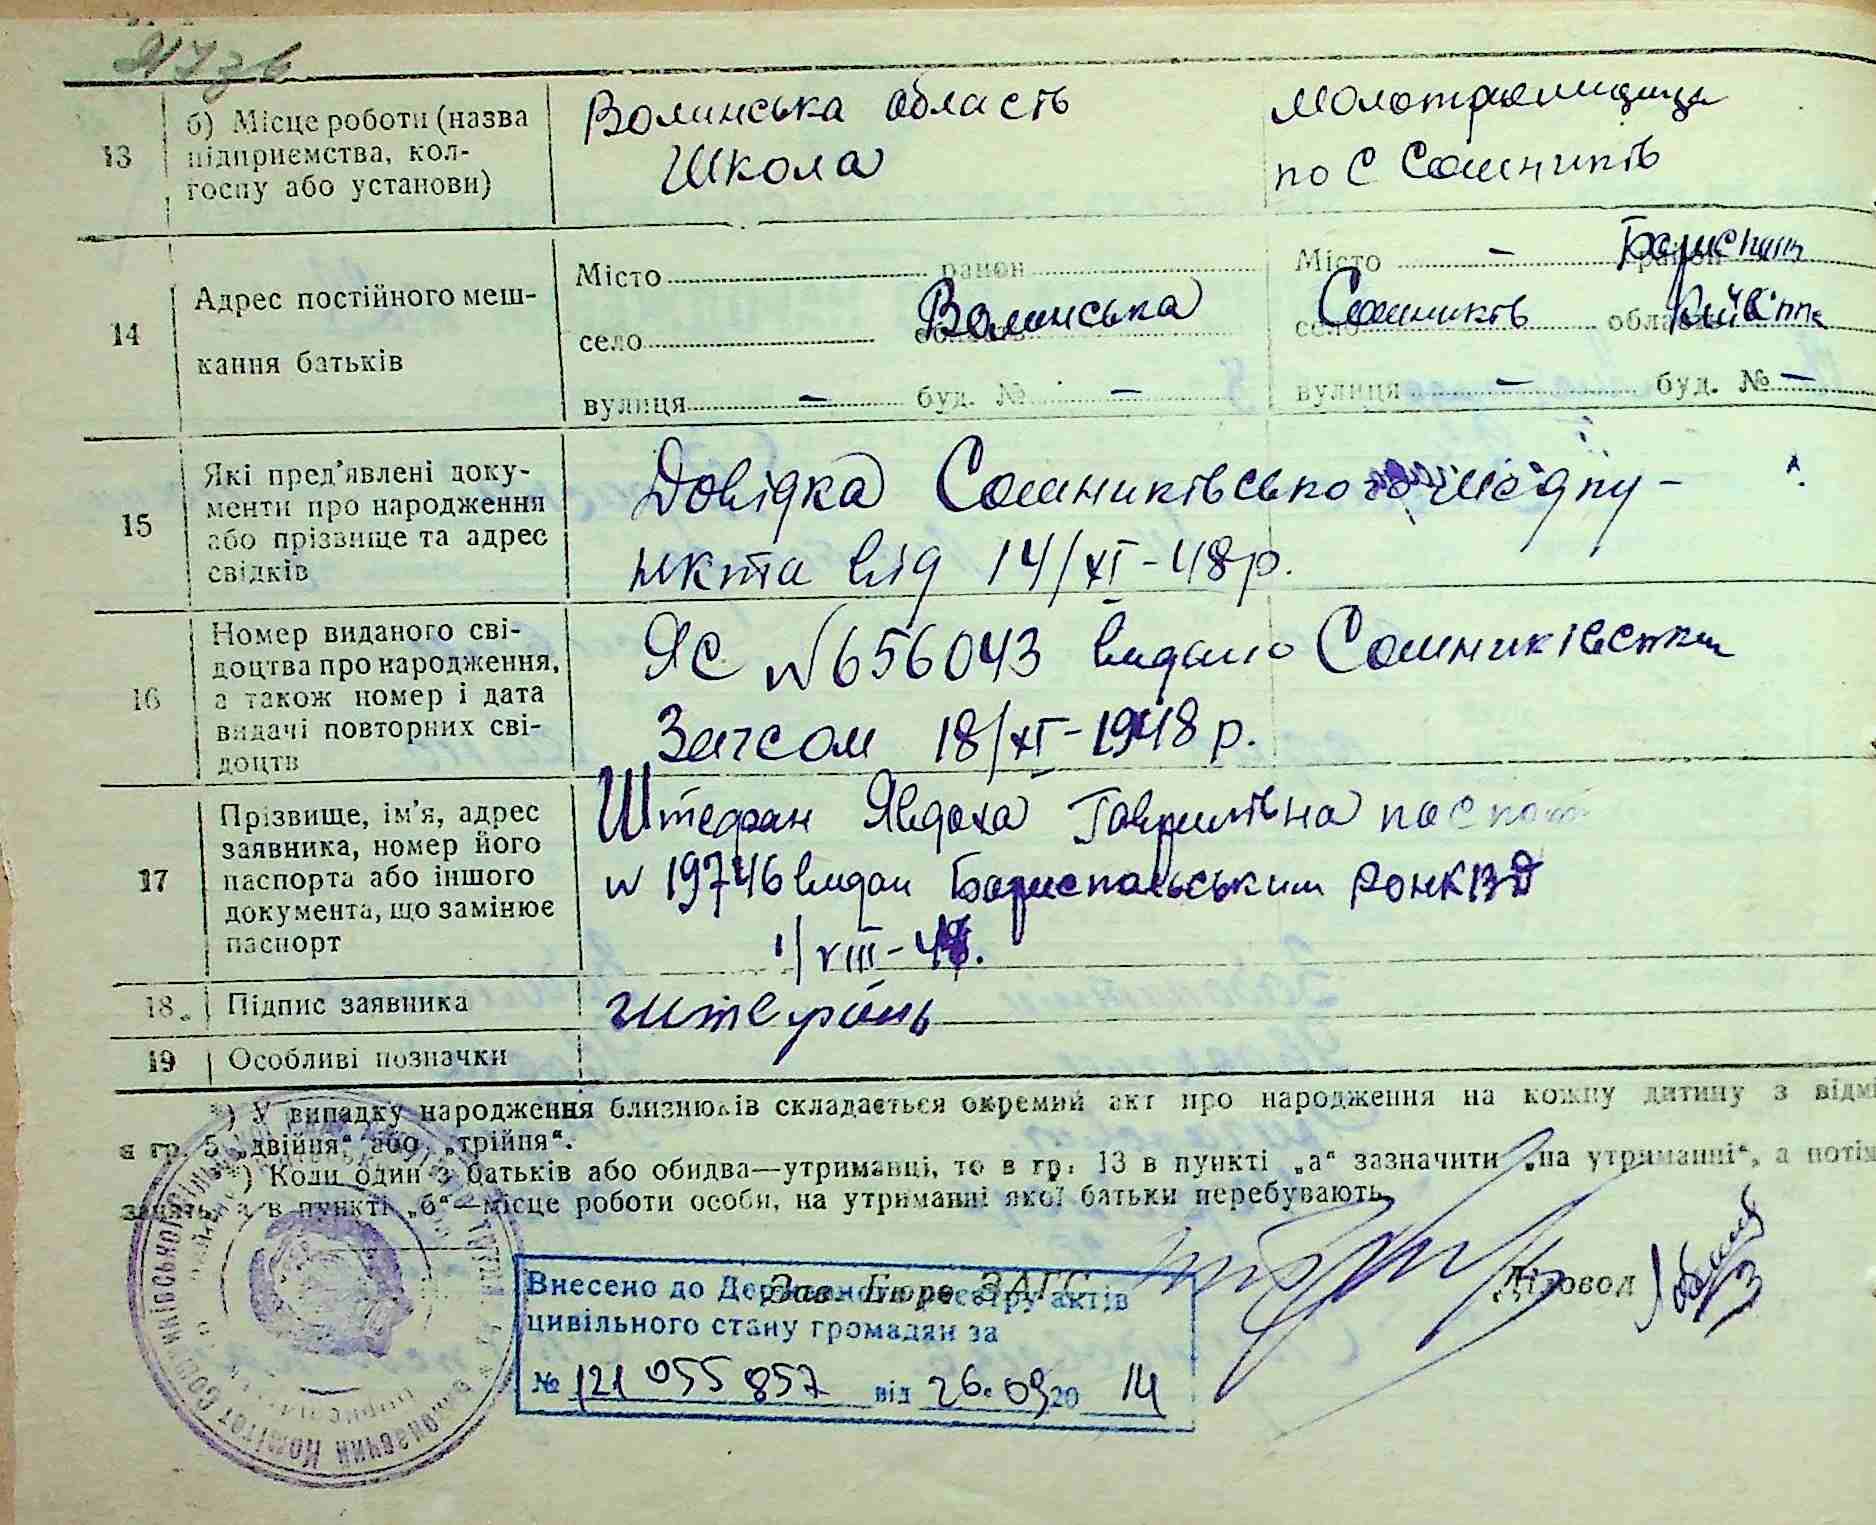 13
б) Місце роботи (назва
підприємства, кол-
госпу або установи)
Волинська область
Школа
по с Сошників
14
Адрес постійного меш-
кання батьків
Місто район
село Волинська
вулиця – буд. № –
Місто – район Бориспіль
село Сошників область Київськ
вулиця – буд. № –
15
Які пред'явлені доку-
менти про народження
або прізвище та адрес
свідків
Довідка Сошниківського медпу-
нкта від 14/XI-48р.
16
Номер виданого сві-
доцтва про народження,
а також номер і дата
видачі повторних сві-
доцтв
ЯС №656043 видано Сошниківським
Загсом 18/XI-1948р.
17
Прізвище, ім'я, адрес
заявника, номер його
паспорта або іншого
документа, що замінює
паспорт
Штефан Явдоха Гаврилівна паспорт
№ 19746 видан Бориспольським РОНКВД
1/VIII-4
18.
Підпис заявника
Штефань
19
Особливі позначки
*) У випадку народження близнюків складається окремий акт про народження на кожну дитину з відмі
в гр. 5 „двійня“ або „трійня“.
*) Коли один з батьків або обидва—утриманці, то в гр. 13 в пункті „а“ зазначити „на утриманні“, а потім
заняття, а в пункті „б“—місце роботи особи, на утриманні якої батьки перебувають.
Зав. Бюро ЗАГС
Діловод
Внесено до Державного реєстру актів
цивільного стану громадян за
№ 121 055 857 від 26.09.2014